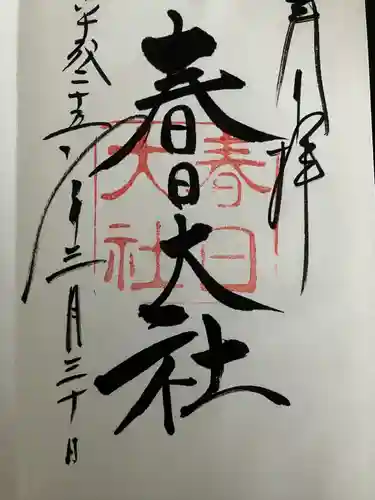 奉拝
春日大社
春日
大社
平成二十五年三月三十日